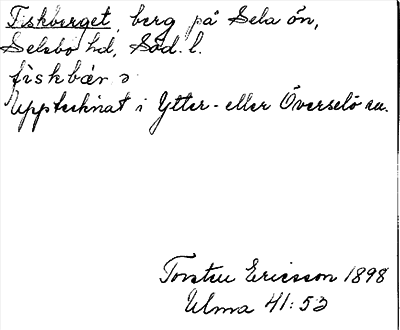 Fiskberget, berg på Sela ön,
Selebo hd, Söd. l.
fiskbär
Upptecknat i Ytter- eller Överselö sn.
Torsten Ericsson 1898
Ulma 41:53